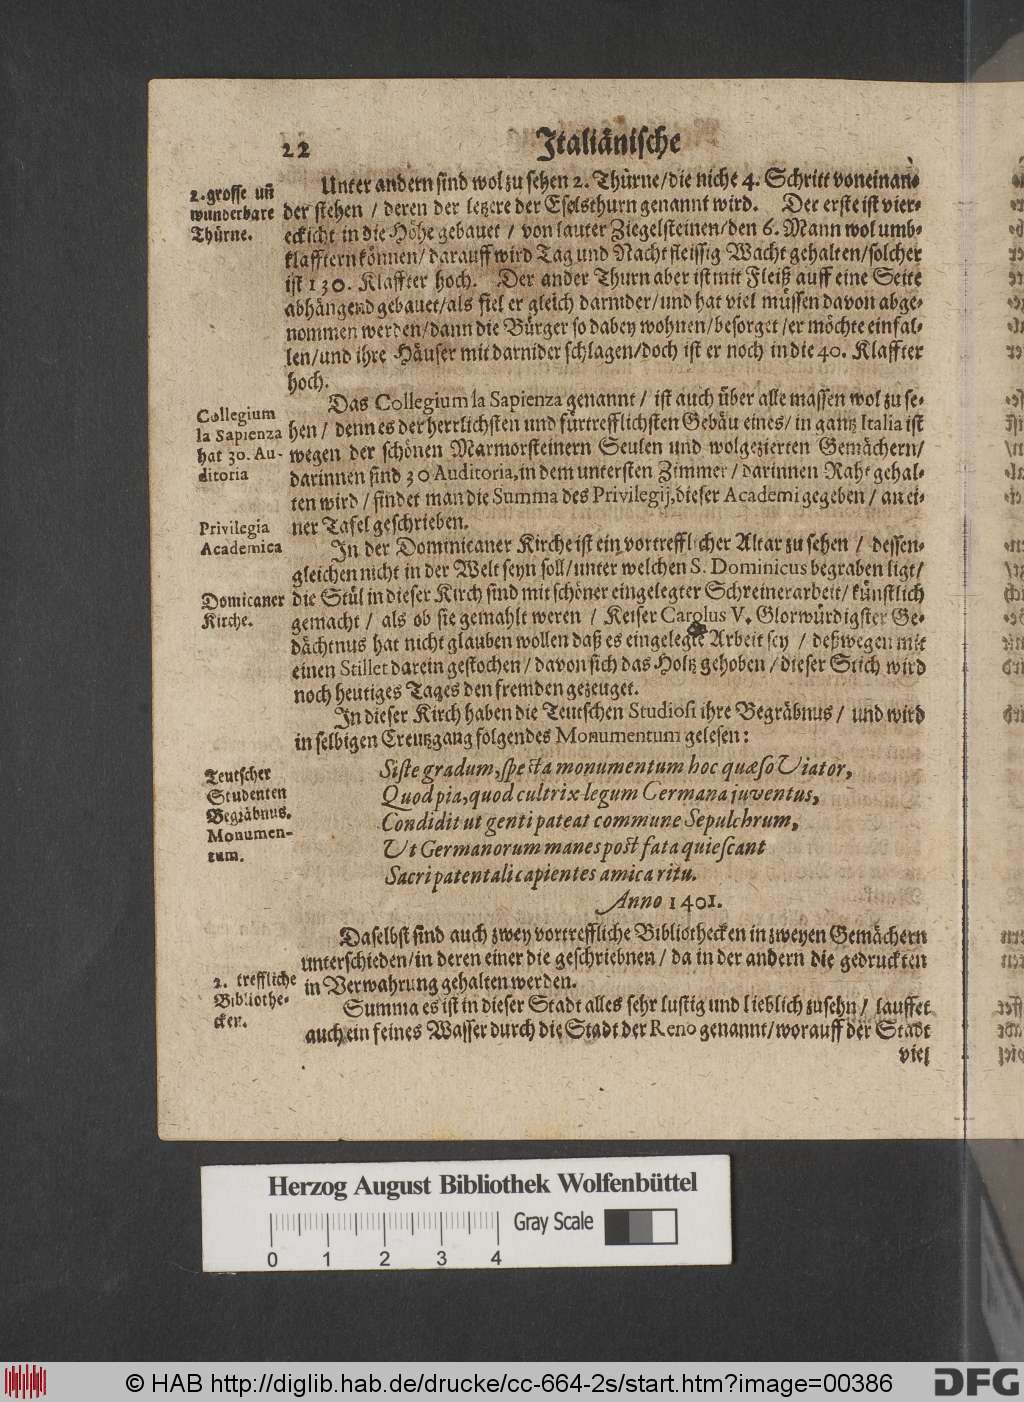 22 Italiänische
2. grosse uñ
wunderbare
Thürne.
Unter andern sind wol zu sehen 2. Thürne/die niche 4. Schritt voneinan-
der stehen / deren der letzere der Eselsthurn genannt wird. Der erste ist vier-
eckicht in die Höhe gebauet / von lauter Ziegelsteinen/den 6. Mann wol umb-
klafftern können/darauff wird Tag und Nacht fleissig Wacht gehalten/solcher
ist 130. Klaffter hoch. Der ander Thurn aber ist mit Fleiß auff eine Seite
abhängend gebauet/als fiel er gleich darnider/und hat viel müssen davon abge-
nommen werden/dann die Bürger so dabey wohnen/besorget/er möchte einfal-
len/und ihre Häuser mit darnider schlagen/doch ist er noch in die 40. Klaffter
hoch.
Collegium
la Sapienza
hat 30. Au-
ditoria
Das Collegium la Sapienza genannt / ist auch über alle massen wol zu se-
hen / denn es der herrlichsten und fürtrefflichsten Gebäu eines/in gantz Italia ist
wegen der schönen Marmorsteinern Seulen und wolgezierten Gemächern/
darinnen sind 30 Auditoria, in dem untersten Zimmer / darinnen Raht gehal-
ten wird / findet man die Summa des Privilegij, dieser Academi gegeben / an ei-
ner Tafel geschrieben.
Privilegia
Academica
In der Dominicaner Kirche ist ein vortrefflicher Altar zu sehen / dessen-
gleichen nicht in der Welt seyn soll/unter welchen S. Dominicus begraben ligt/
Domicaner
Kirche.
die Stül in dieser Kirch sind mit schöner eingelegter Schreinerarbeit/künstlich
gemacht / als ob sie gemahlt weren / Keiser Carolus V. Glorwürdigster Ge-
dächtnus hat nicht glauben wollen daß es eingelegte Arbeit sey / deßwegen mit
einen Stillet darein gestochen / davon sich das Holtz gehoben / dieser Stich wird
noch heutiges Tages den fremden gezeuget.
In dieser Kirch haben die Teutschen Studiosi ihre Begräbnus / und wird
in selbigen Creutzgang folgendes Monumentum gelesen:
Teutscher
Studenten
Begräbnus.
Monumen-
tum.
Siste gradum, specta monumentum hoc quæso Viator,
Quod pia, quod cultrix legum Germana juventus,
Condidit ut genti pateat commune Sepulchrum,
Ut Germanorum manes post fata quiescant
Sacri patentali capientes amica ritu.
Anno 1401.
Daselbst sind auch zwey vortreffliche Bibliothecken in zweyen Gemächern
unterschieden/in deren einer die geschriebnen / da in der andern die gedruckten
in Verwahrung gehalten werden.
2. treffliche
Bibliothe-
cken.
Summa es ist in dieser Stadt alles sehr lustig und lieblich zusehn / lauffet
auch ein feines Wasser durch die Stadt der Reno genannt/worauff der Stadt
viel
Herzog August Bibliothek Wolfenbüttel
Gray Scale
0 1 2 3 4
© HAB http://diglib.hab.de/drucke/cc-664-2s/start.htm?image=00386
DFG